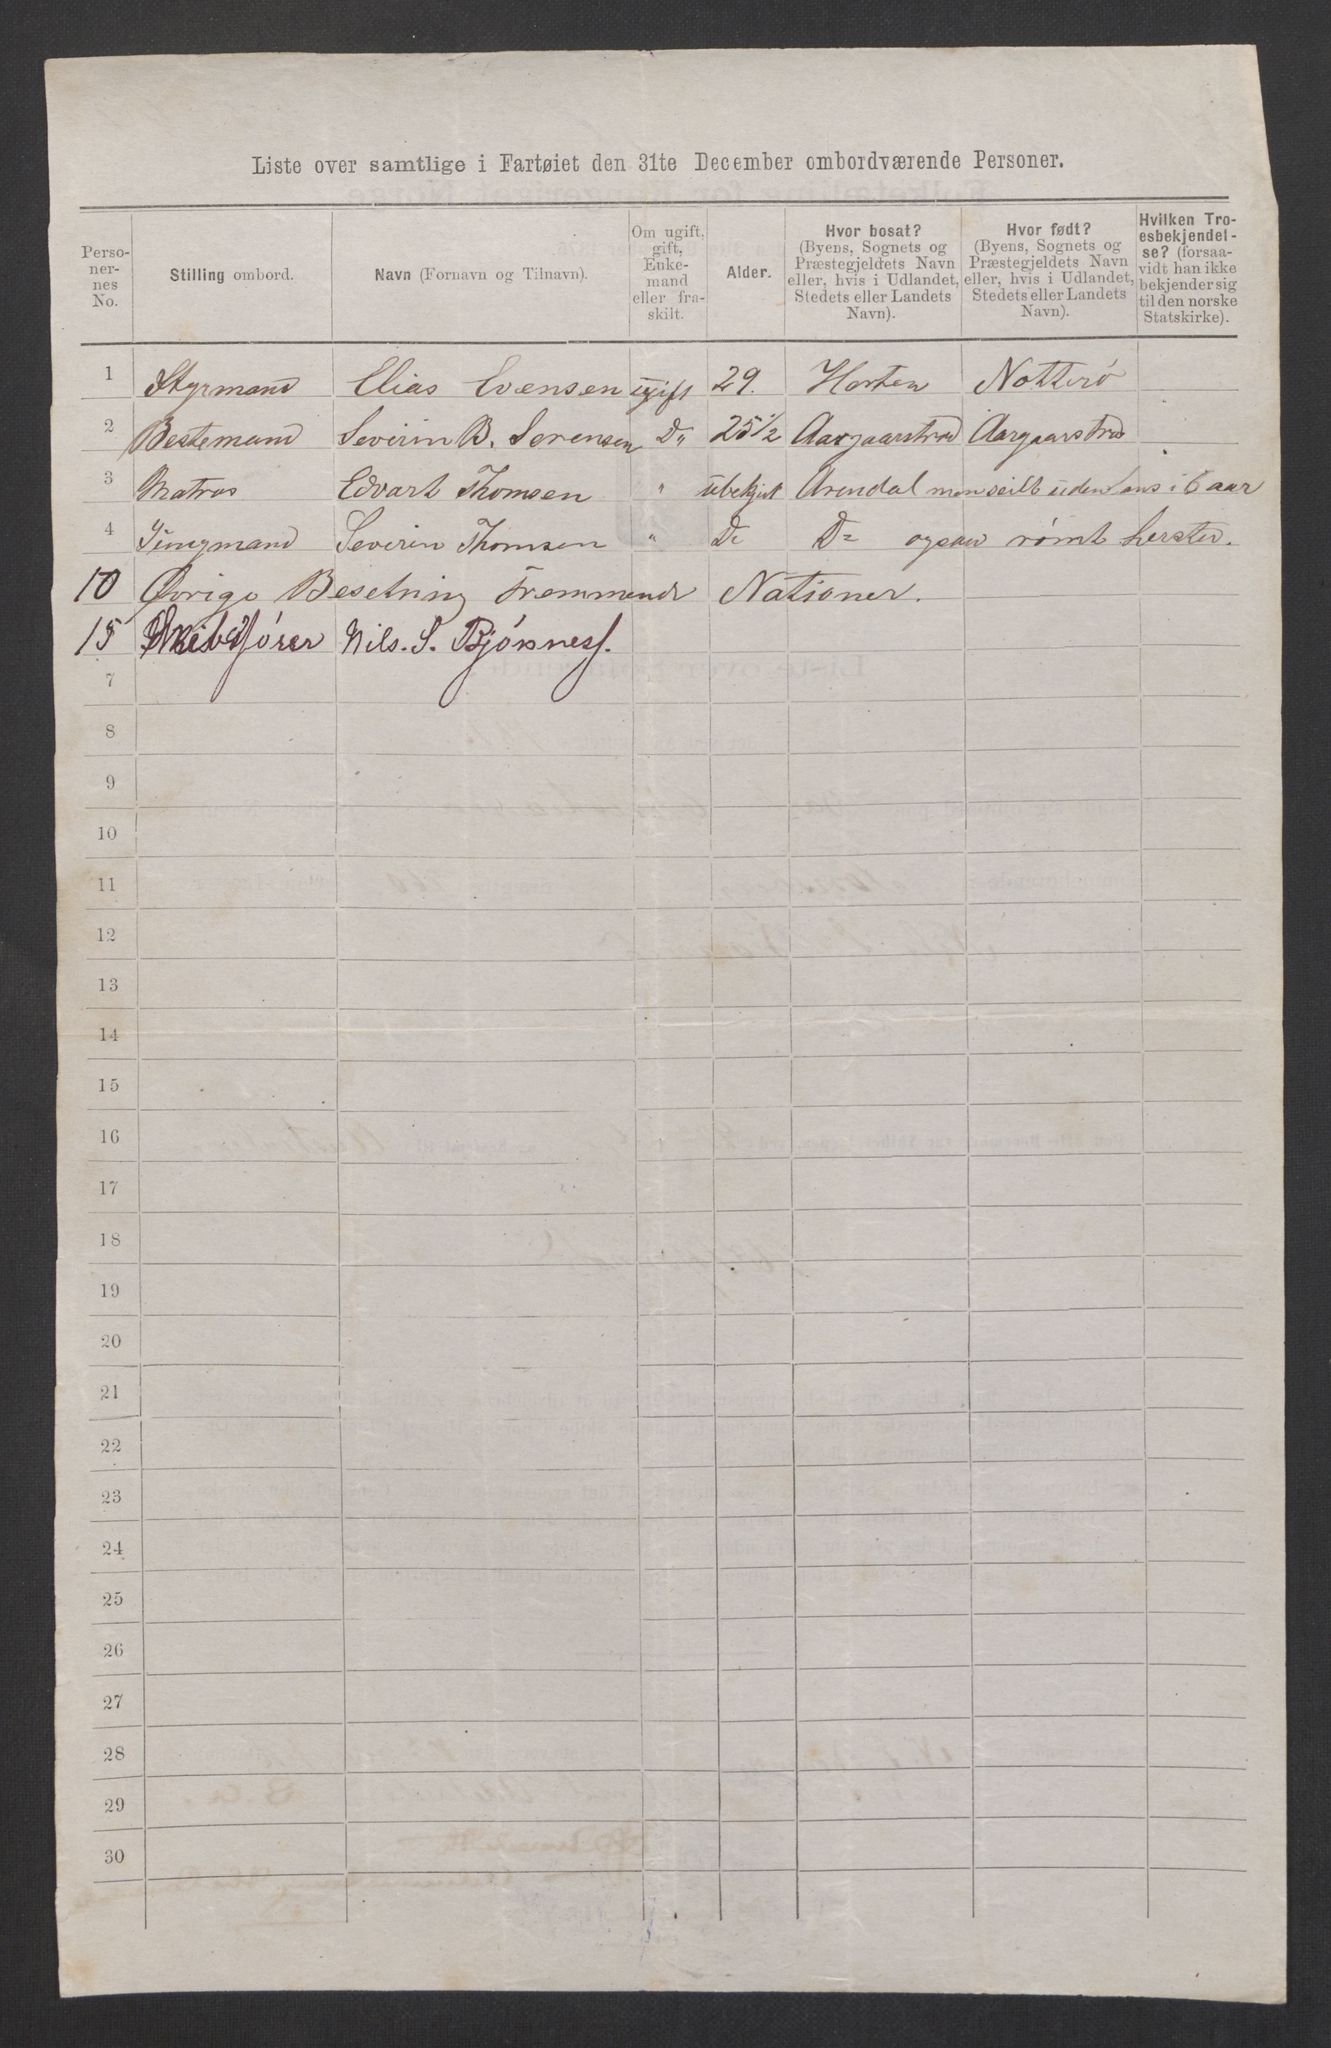 Liste over samtlige i Fartøiet den 31te December ombordværende Personer.
Perso-
ner-
nes
No.
Stilling ombord.
Navn (Fornavn og Tilnavn).
Om ugift,
gift,
Enke-
mand
eller fra-
skilt.
Alder.
Hvor bosat?
(Byens, Sognets og
Præstegjeldets Navn
eller, hvis i Udlandet,
Stedets eller Landets
Navn).
Hvor født?
(Byens, Sognets og
Præstegjeldets Navn
eller, hvis i Udlandet,
Stedets eller Landets
Navn).
Hvilken Tro-
esbekjendel-
se? (forsaa-
vidt han ikke
bekjender sig
til den norske
Statskirke).
1 Styrmand Elias Evensen ugift 29. Horten Notterö
2 Bestemand Severin B. Sørensen D" 25 1/2 Aasgaarstrad Aasgaarstrad
3 Matros Edvart Thomsen " ubekjent Arendal men seilt udenlans i 6 aar
4 Jungmand Severin Thomsen " Do Do ogsaa römt herster.
10 Øvrige Besetning Fremmende Nationer.
15 Skibsförer Nils. S. Bjönnes.
7
8
9
10
11
12
13
14
15
16
17
18
19
20
21
22
23
24
25
26
27
28
29
30